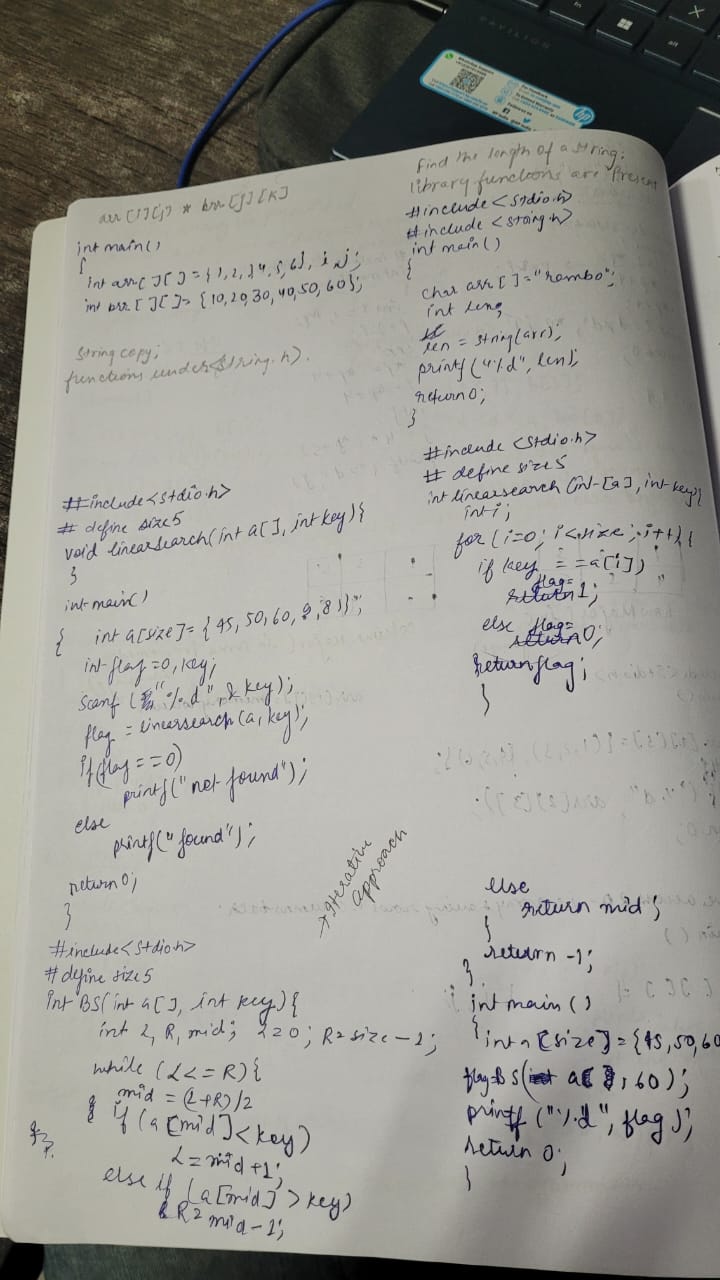 arr [i][j] * brr [j][k]
int main()
{
int arr[ ][ ] = {1,2,3,4,5,6}, i, j;
int brr [ ][ ]= {10,20,30,40,50,60};
String copy;
functions under<string.h>.
#include<stdio.h>
# define size5
void linearsearch(int a[ ], int key){
}
int main()
{ int a[size]= {45,50,60,9,8}};
int flag=0,key;
scanf ("%d",& key);
flag = linearsearch(a,key);
if(flag==0)
printf("not found");
else
printf("found");
return 0;
}
#include<stdio.h>
#define size5
int BS(int a[], int key){
int L, R, mid; L=0; R=size-1;
while (L<=R){
mid = (L+R)/2
if (a[mid]<key)
L=mid+1;
else if (a[mid]>key)
R=mid-1;
Iterative
approach
Find the length of a string:
library functions are present
#include<stdio.h>
#include <string.h>
int main()
{
char arr[ ]="rambo";
int len;
len = string(arr);
printf("%d", len);
return 0;
}
#include <stdio.h>
# define size5
int linearsearch (int [a], int key){
int i;
for (i=0; i<size; i++){
if key ==a[i])
flag=
return 1;
else flag=
return 0;
return flag;
}
else
return mid;
}
return -1;
}
int main()
{
int a[size]={45,50,60
flag=BS(int a[ ], 60);
printf("%d", flag);
return 0;
}
PAVILION
hp
alt